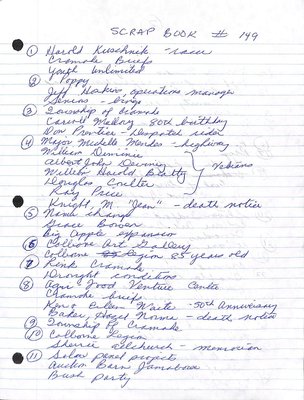 SCRAP BOOK # 149
① Harold Kuschnik - racer
Cramahe Briefs
Youth Unlimited
② Poppy
Jeff Hoskins, operations manager
Seniors - bingo
③ Township of Cramahe
Carroll Mallory 80th birthday
Don Prentice - Despatch rider
④ Major Michelle Mendes - highway
William Deviney
Albert John Deviney
William Harold Beatty
Veterans
Douglas Coulter
Ray Price
Knight, M "Jean" - death notice
⑤ Name change
Grace Bowen
Big Apple expansion
⑥ Colborne Art Gallery
Colborne Legion 85 years old
⑦ Rink Cramahe
Drought conditions
⑧ Agri-Food Venture Centre
Cramahe briefs
Jim & Eileen Waite - 50th Anniversary
Baker, Hazel Norma - death notice
⑨ Township of Cramahe
⑩ Colborne Legion
Sherrie - memoriam
⑪ Solar panel project
Auction Barn Jamboree
Bush Party